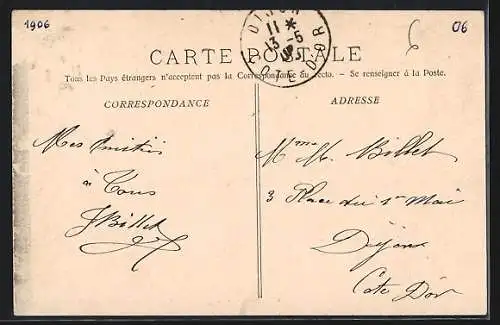 1906
06
DIJON
11 * 13-5
CÔTE D'OR
CARTE POSTALE
Tous les Pays étrangers n'acceptent pas la Correspondance au recto. - Se renseigner à la Poste.
CORRESPONDANCE
ADRESSE
Mes Amitiés
à Tous
J Billet
Mme M. Billet
3 Place du 1er Mai
Dijon
Cote D'or